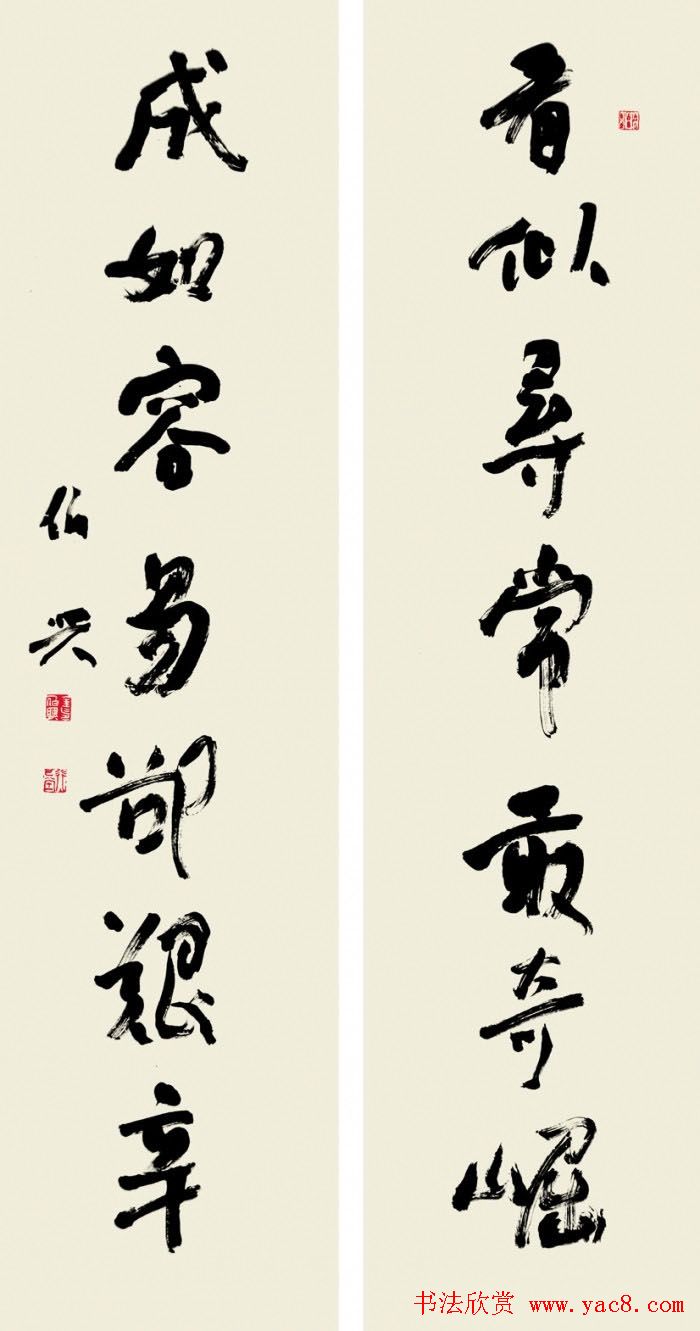 看似尋常最奇崛
成如容易却艱辛
伯兴
书法欣赏 www.yac8.com